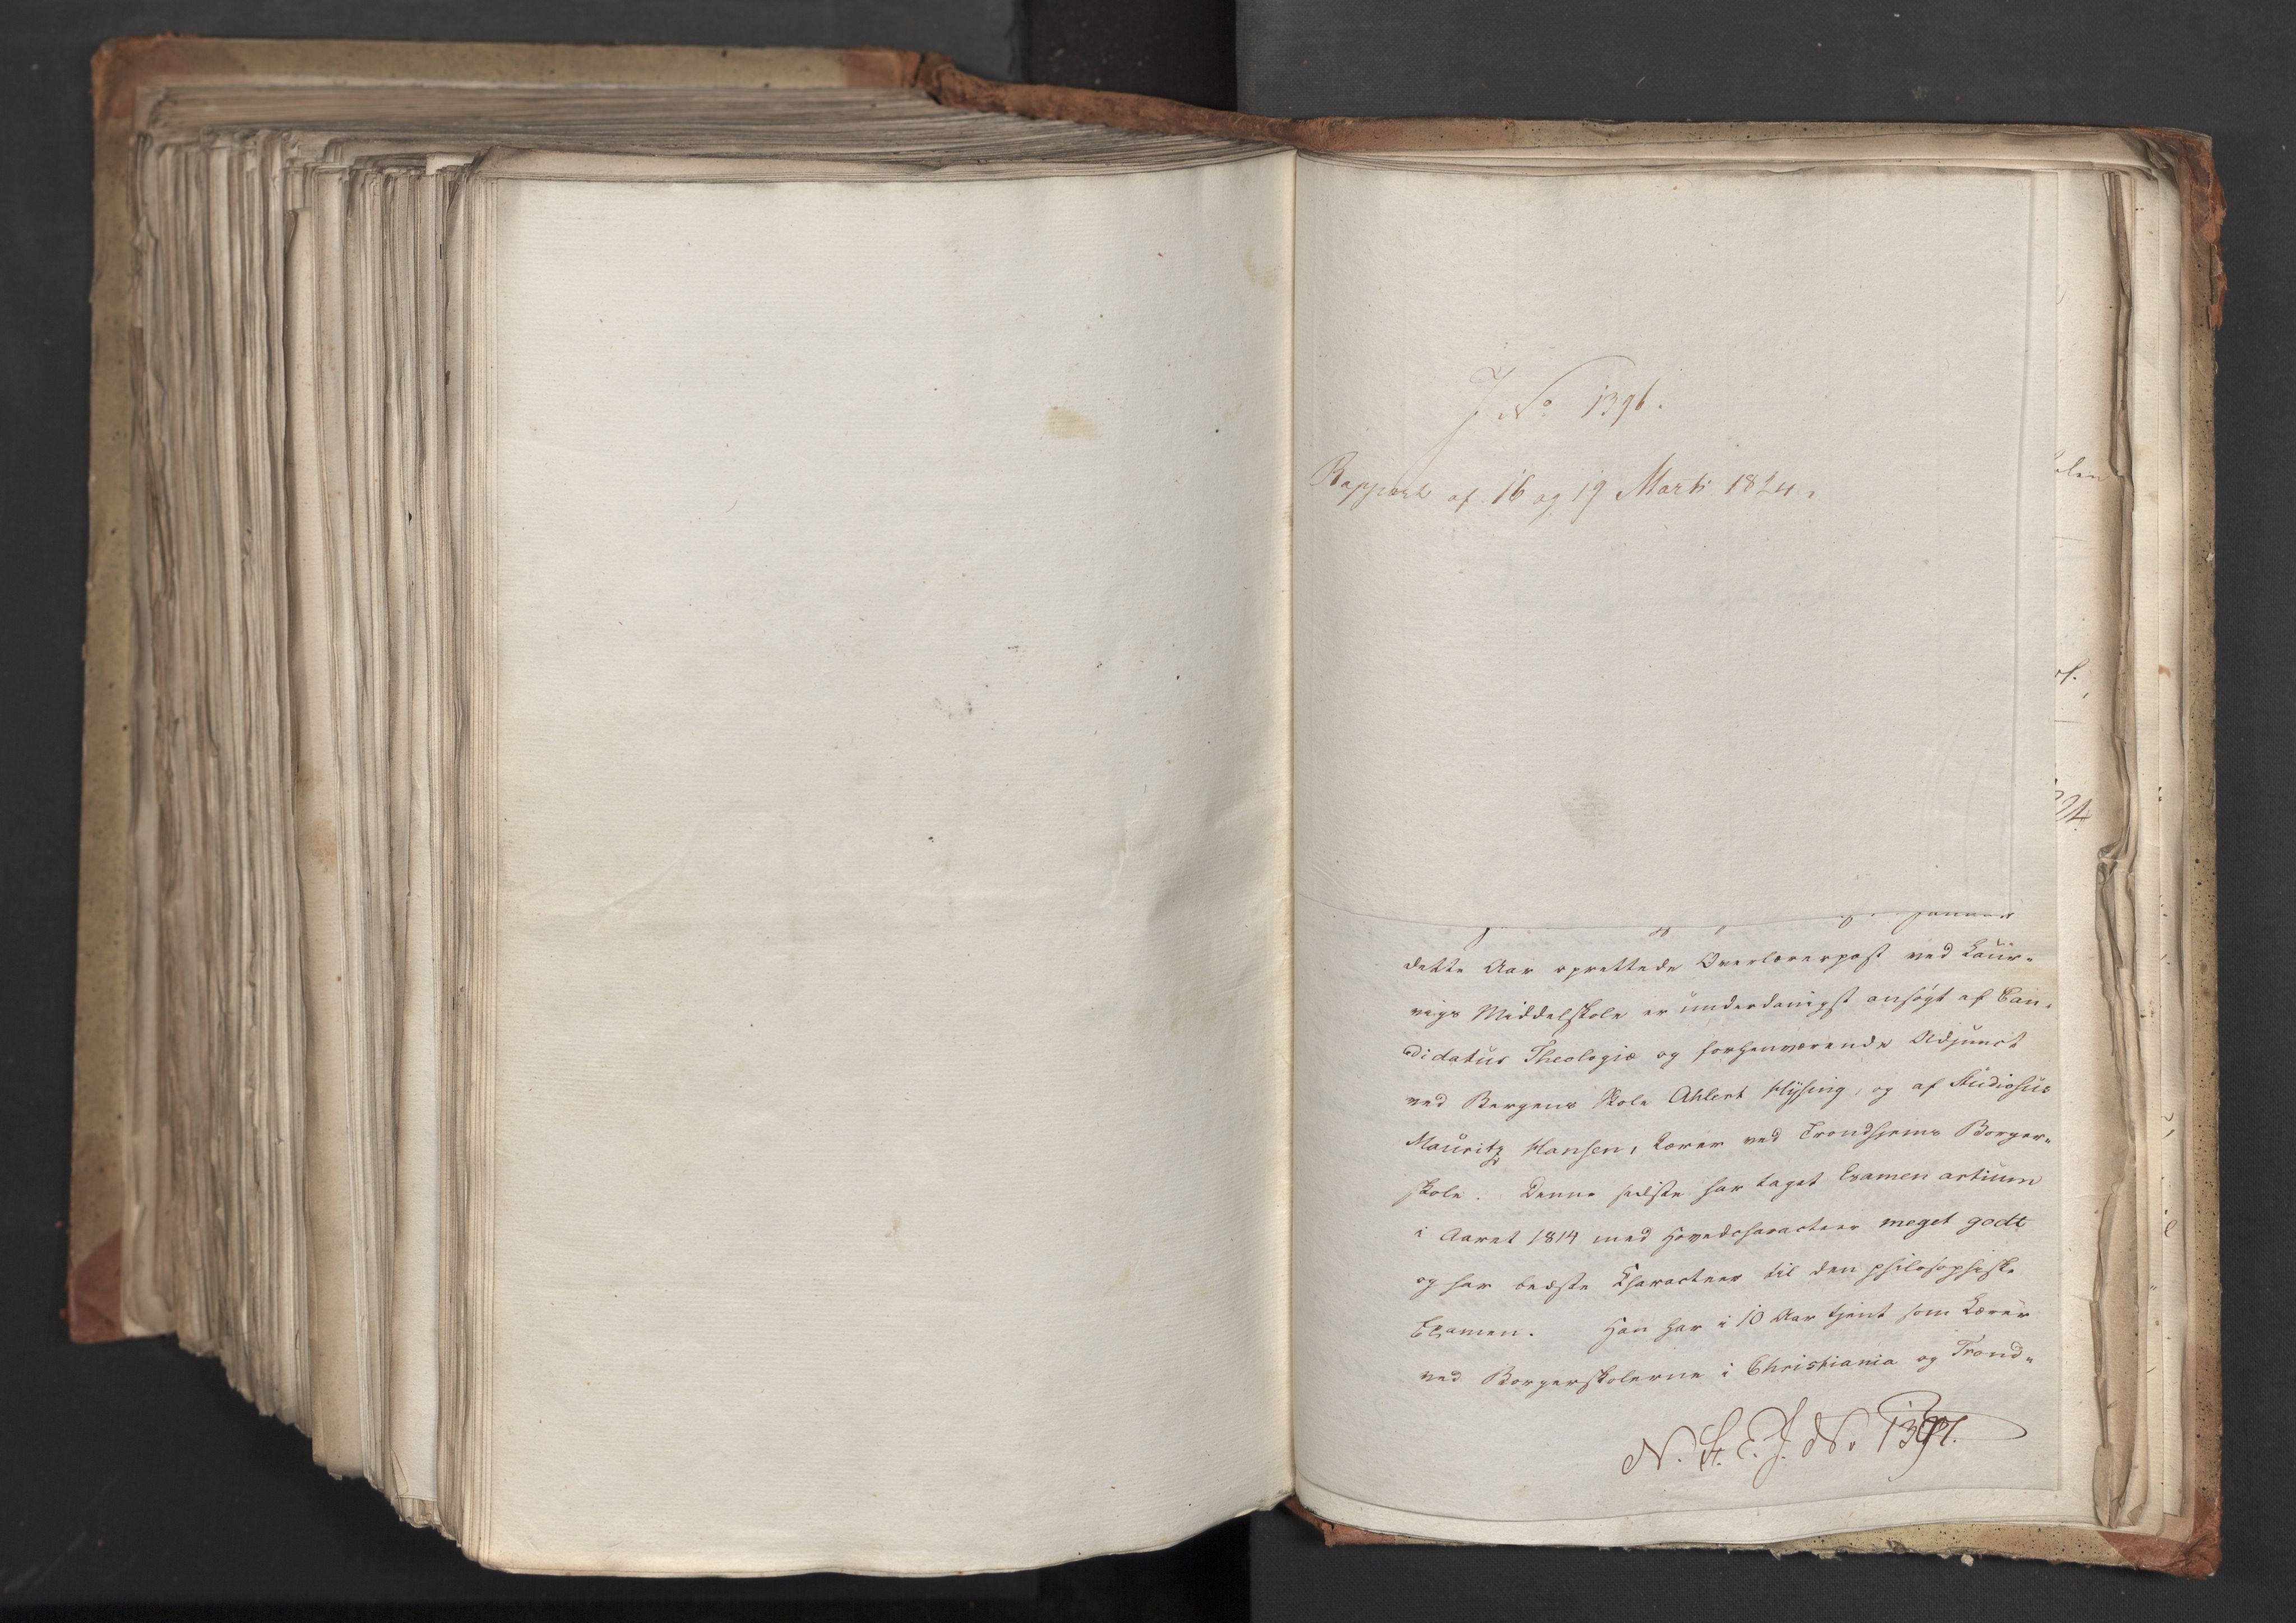 J N° 1396.
Rapport af 16 og 19 Marti 1824.
dette Aar oprettede Overlærerpost ved Laur-
vigs Middelskole er underdanigst ansøgt af Can-
didatus Theologiæ og forhenværende Adjunct
ved Bergens Skole Ahlert Hysing, og af Studiosus
Mauritz Hansen, Lærer ved Trondhjems Borger-
skole. Denne sidste har taget Examen artium
i Aaret 1814 med Hovedcharacteer meget godt
og har bedste Characteer til den philosophiske
Examen. Han har i 10 Aar tjent som Lærer
ved Borgerskolerne i Christiania og Trond-